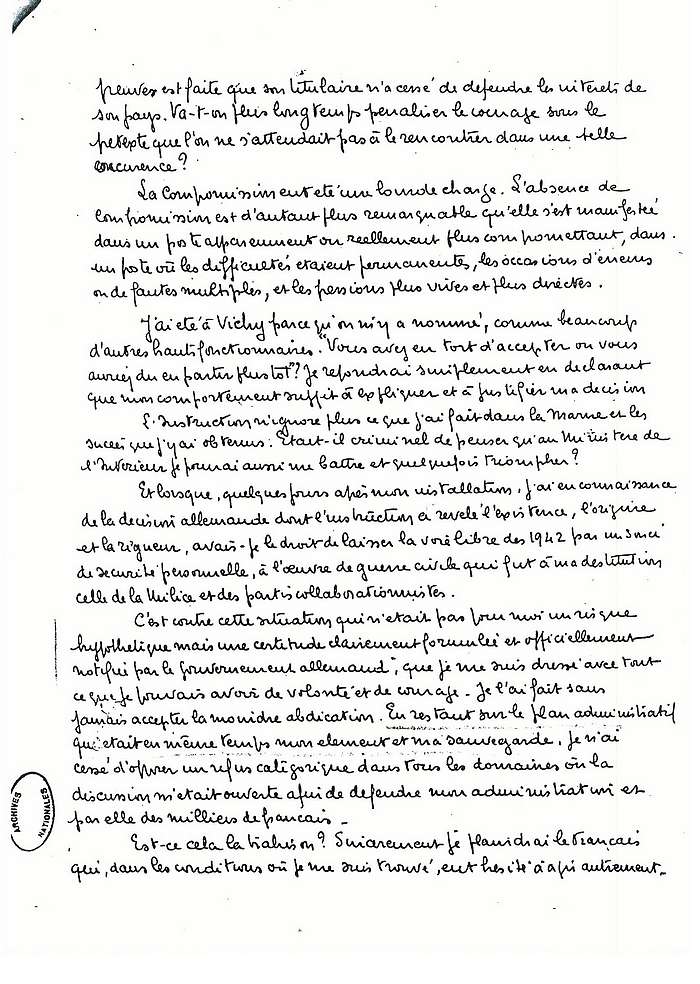 preuves est faite que son titulaire n'a cessé de defendre les interets de
son pays. Va-t-on plus longtemps penaliser le courage sous le
pretexte que l'on ne s'attendait pas à le rencontrer dans une telle
concurence ?
La Compromission eut eté une lourde charge. L'absence de
Compromission est d'autant plus remarquable qu'elle s'est manifestée
dans un poste apparemment ou reellement plus compromettant, dans
un poste où les difficultés etaient permanentes, les occasions d'erreurs
ou de fautes multiples, et les pressions plus vives et plus directes.
J'ai eté à Vichy parce qu'on m'y a nommé, comme beaucoup
d'autres hauts fonctionnaires. "Vous avez eu tort d'accepter ou vous
auriez du en partir plus tot"? Je repondrai simplement en declarant
que mon comportement suffit à expliquer et à justifier ma decision
L'Instruction n'ignore plus ce que j'ai fait dans la Marne et les
succès que j'y ai obtenus. Etait-il criminel de penser qu'au Ministere de
l'Interieur je pourrai aussi me battre et quelquefois triompher ?
Et lorsque, quelques jours après mon installation, j'ai eu connaissance
de la decision allemande dont l'instruction a revelé l'existence, l'origine
et la rigueur, avais-je le droit de laisser la voie libre des 1942 par un souci
de securité personnelle, à l'œuvre de guerre civile qui fut à ma destitution
celle de la Milice et des partis collaborationnistes.
C'est contre cette situation qui n'etait pas pour moi un risque
hypothetique mais une certitude clairement formulée et officiellement
notifiée par le Gouvernement allemand", que je me suis dressé avec tout
ce que je pouvais avoir de volonté et de courage. Je l'ai fait sans
jamais accepter la moindre abdication. En restant sur le plan administratif
qui etait en même temps mon element et ma sauvegarde, je n'ai
cessé d'opposer un refus catégorique dans tous les domaines où la
discussion m'etait ouverte afin de defendre mon administration et
par elle des milliers de francais -
Est-ce cela la trahison ? Sincerement je plaindrai le Français
qui, dans les conditions où je me suis trouvé, eut hesité à agir autrement.
ARCHIVES
NATIONALES